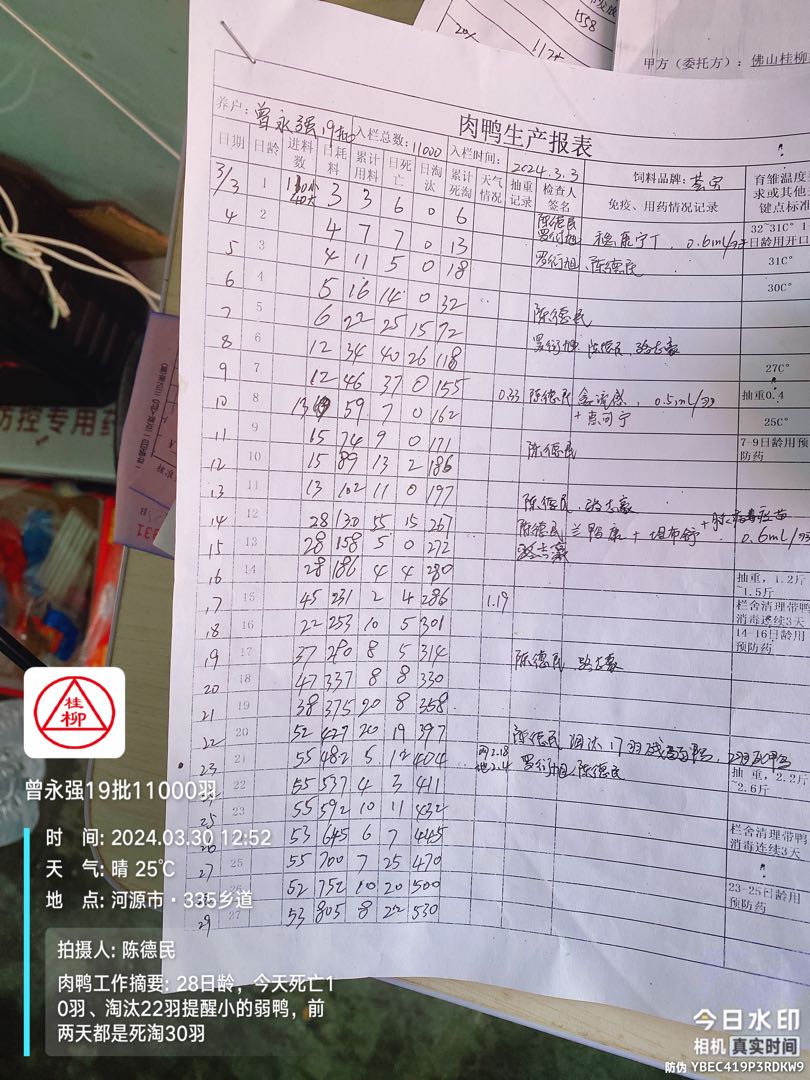 1558
1124
甲方（委托方）：佛山桂柳
肉鸭生产报表
养户：曾永强19批 入栏总数：11000 入栏时间：2024.3.3 饲料品牌：
日期 日龄 进料数 日耗料 累计用料 日死亡 日淘汰 累计死淘 天气情况 抽重记录 检查人签名 免疫、用药情况记录 育雏温度要求或其他关键点标准
3/3 1 3 3 6 0 6
4 2 4 7 7 0 13 陈德民 罗衍旭 0.6ml/羽 32~31C° 1日龄用开口
5 3 4 11 5 0 18 罗衍旭、陈德民 31C°
6 4 5 16 14 0 32 30C°
7 5 6 22 25 15 72 陈德民
8 6 12 34 40 26 118 罗衍旭 陈德民
9 7 12 46 37 0 155 27C°
10 8 13 59 7 0 162 0.33 陈德民 禽流感，0.5ml/羽 抽重0.4
11 9 15 74 9 0 171 25C°
12 10 15 89 13 2 186 陈德民 7-9日龄用预防药
13 11 13 102 11 0 197 陈德民
14 12 28 130 55 15 267 陈德民 0.6ml/羽
15 13 28 158 5 0 272
16 14 28 186 4 4 280 抽重，1.2斤~1.5斤
17 15 45 231 2 4 286 1.19 栏舍清理带鸭消毒连续3天
18 16 22 253 10 5 301 14-16日龄用预防药
19 17 37 290 8 5 314 陈德民
20 18 47 337 8 8 330
21 19 38 375 20 8 358
22 20 52 427 20 19 397 陈德民 淘汰17羽残
23 21 55 482 5 12 404 2.18 2.4 罗衍旭、陈德民 抽重，2.2斤~2.6斤
55 537 4 3 411
25 23 55 592 10 11 432
26 53 645 6 7 445 栏舍清理带鸭消毒连续3天
27 25 55 700 7 25 470
52 752 10 20 500 23-25日龄用预防药
29 27 53 805 8 22 530
防控专用药
桂柳
曾永强19批11000羽
时 间: 2024.03.30 12:52
天 气: 晴 25℃
地 点: 河源市·335乡道
拍摄人: 陈德民
肉鸭工作摘要: 28日龄，今天死亡1
0羽、淘汰22羽提醒小的弱鸭，前
两天都是死淘30羽
今日水印
相机 真实时间
防伪 YBEC419P3RDKW9